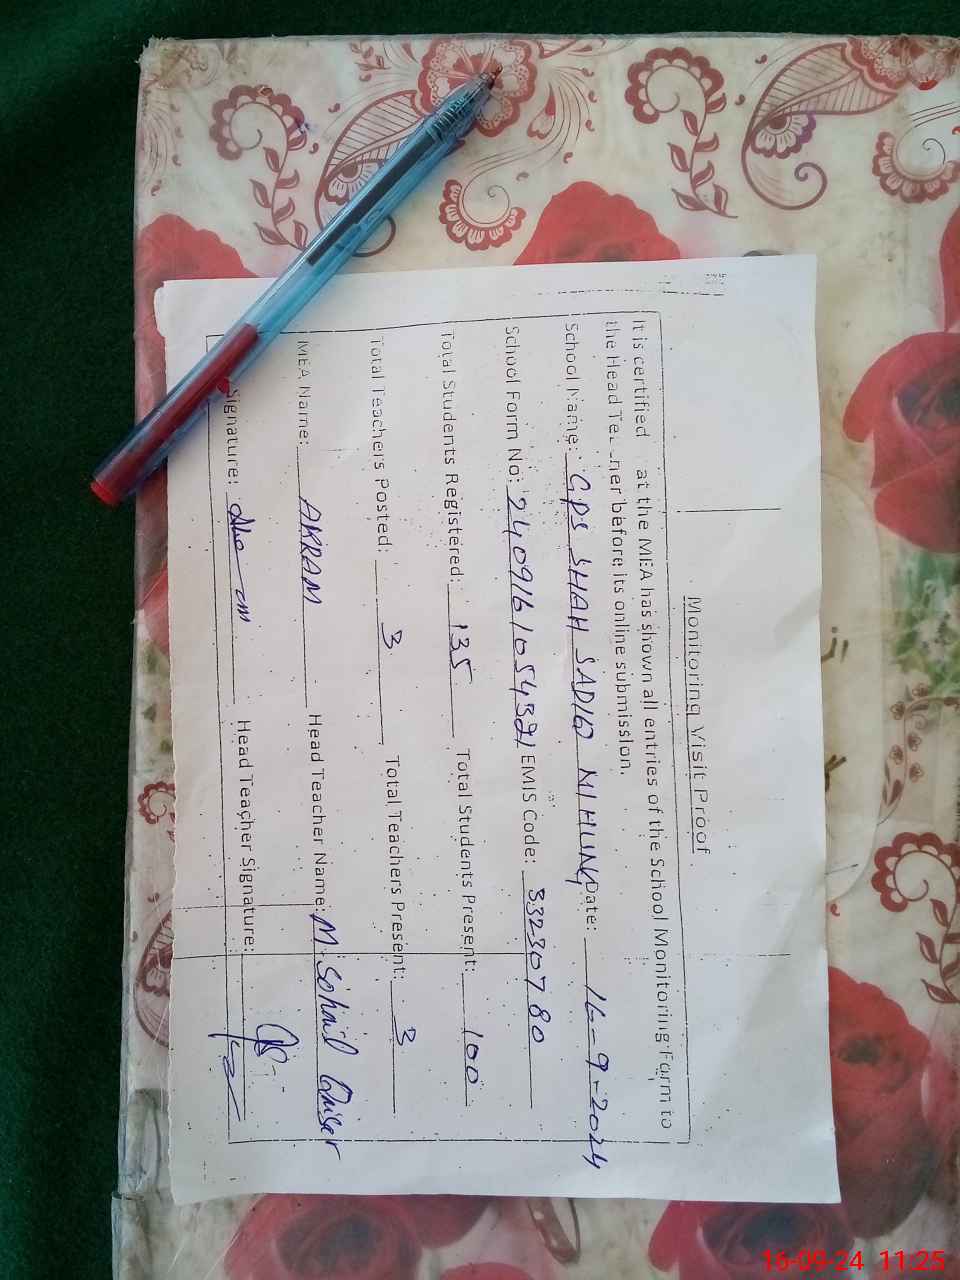 Monitoring Visit Proof
It is certified at the MEA has shown all entries of the School Monitoring Form to
the Head Tea ner before its online submission.
School Name: GPS SHAH SADIQ MIHUNG Date: 16-9-2024
School Form No: EMIS Code: 33230780
Total Students Registered: 135 Total Students Present: 100
Total Teachers Posted: 3 Total Teachers Present: 3
MEA Name: AKRAM Head Teacher Name: M. Sohail Qaiser
Signature: Head Teacher Signature:
16-09-24 11:25